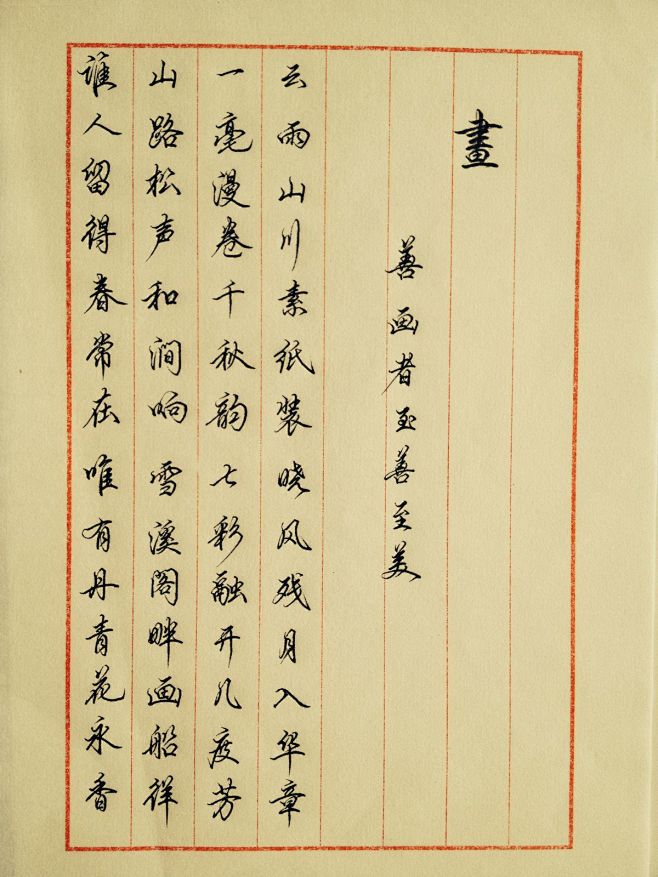 畫
善画者至善至美
云雨山川素纸装晓风残月入华章
一毫漫卷千秋韵七彩融开几度芳
山路松声和涧响雪溪阁畔画船徉
谁人留得春常在唯有丹青花永香